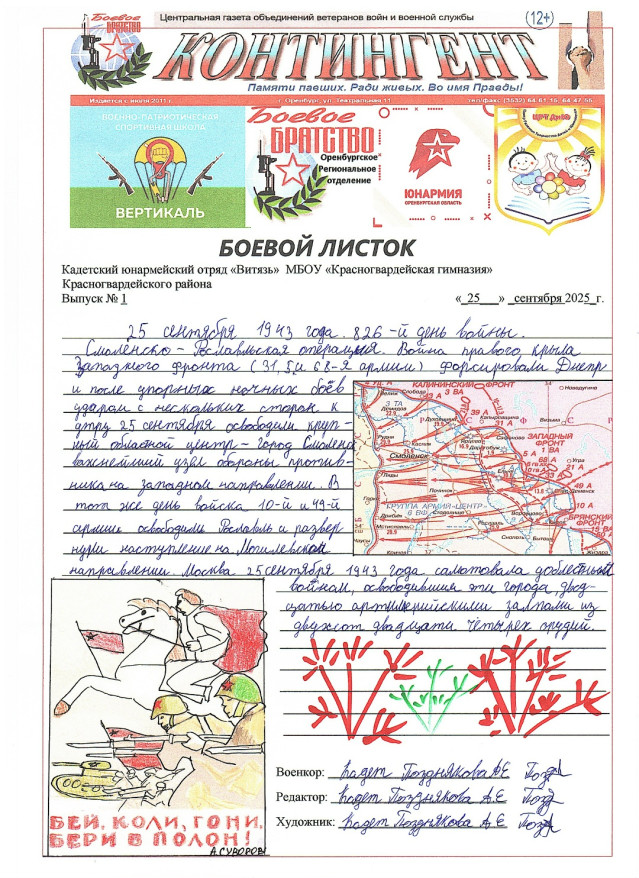 Центральная газета объединений ветеранов войн и военной службы
12+
Боевое
БРАТСТВО
КОНТИНГЕНТ
Памяти павших. Ради живых. Во имя Правды!
Издаётся с июля 2011 г.
г. Оренбург, ул. Театральная 11
тел/факс (3532) 64-61-16, 64-47-55
ВОЕННО-ПАТРИОТИЧЕСКАЯ
СПОРТИВНАЯ ШКОЛА
ВЕРТИКАЛЬ
Боевое
БРАТСТВО
Оренбургское
Региональное
отделение
ЮНАРМИЯ
ОРЕНБУРГСКАЯ ОБЛАСТЬ
БОЕВОЙ ЛИСТОК
Кадетский юнармейский отряд «Витязь» МБОУ «Красногвардейская гимназия»
Красногвардейского района
Выпуск № 1
«_25___» _сентября 2025_г.
25 сентября 1943 года. 826-й день войны.
Смоленско-Рославльская операция. Война правого крыла
Западного фронта (31, 5 и 68-я армии) форсировали Днепр
и после упорных ночных боёв
ударом с нескольких сторон к
утру 25 сентября освободили круп-
ный областной центр - город Смоленс
важнейший узел обороны против-
ника на западном направлении. В
тот же день войска 10-й и 49-й
армии освободили Рославль и развер-
нули наступление на Могилевском
направлении. Москва 25 сентября 1943 года салютовала доблестным
войнам, освободившим эти города, двад-
цатью артиллерийскими залпами из
двухсот двадцати четырех орудий.
КАЛИНИНСКИЙ ФРОНТ
ЗАПАДНЫЙ
ФРОНТ
1 ВА
Смоленск
ГРУППА АРМИЙ «ЦЕНТР»
6 ВФ
БРЯНСКИЙ
ФРОНТ
БЕЙ, КОЛИ, ГОНИ,
БЕРИ В ПОЛОН!
А.СУВОРОВ
Военкор: Кадет Позднякова А.Е. Позд
Редактор: Кадет Позднякова А.Е. Позд
Художник: Кадет Позднякова А.Е. Позд